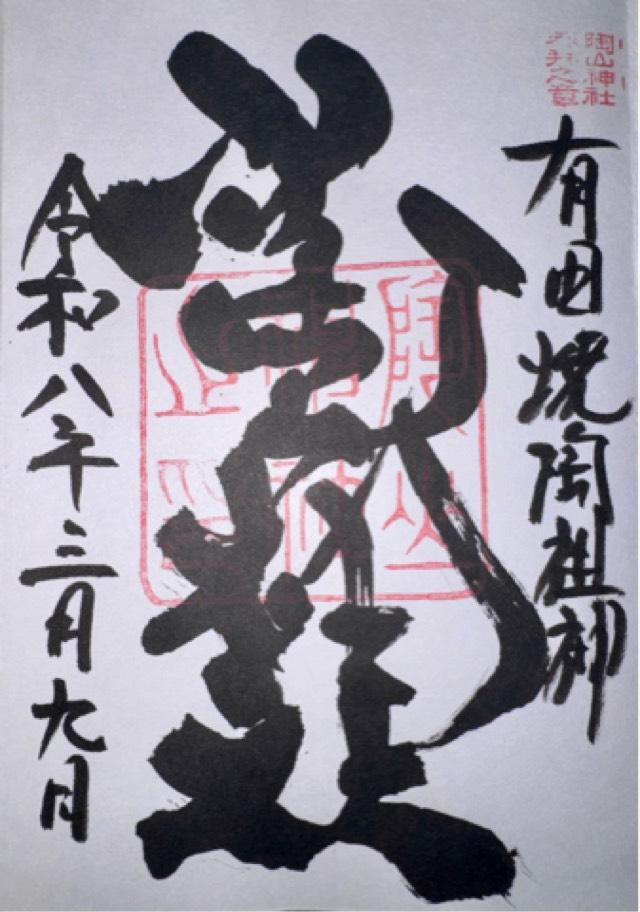 陶山神社
参拝之章
有田焼陶祖神
陶山
神社
之印
令和八年三月九日